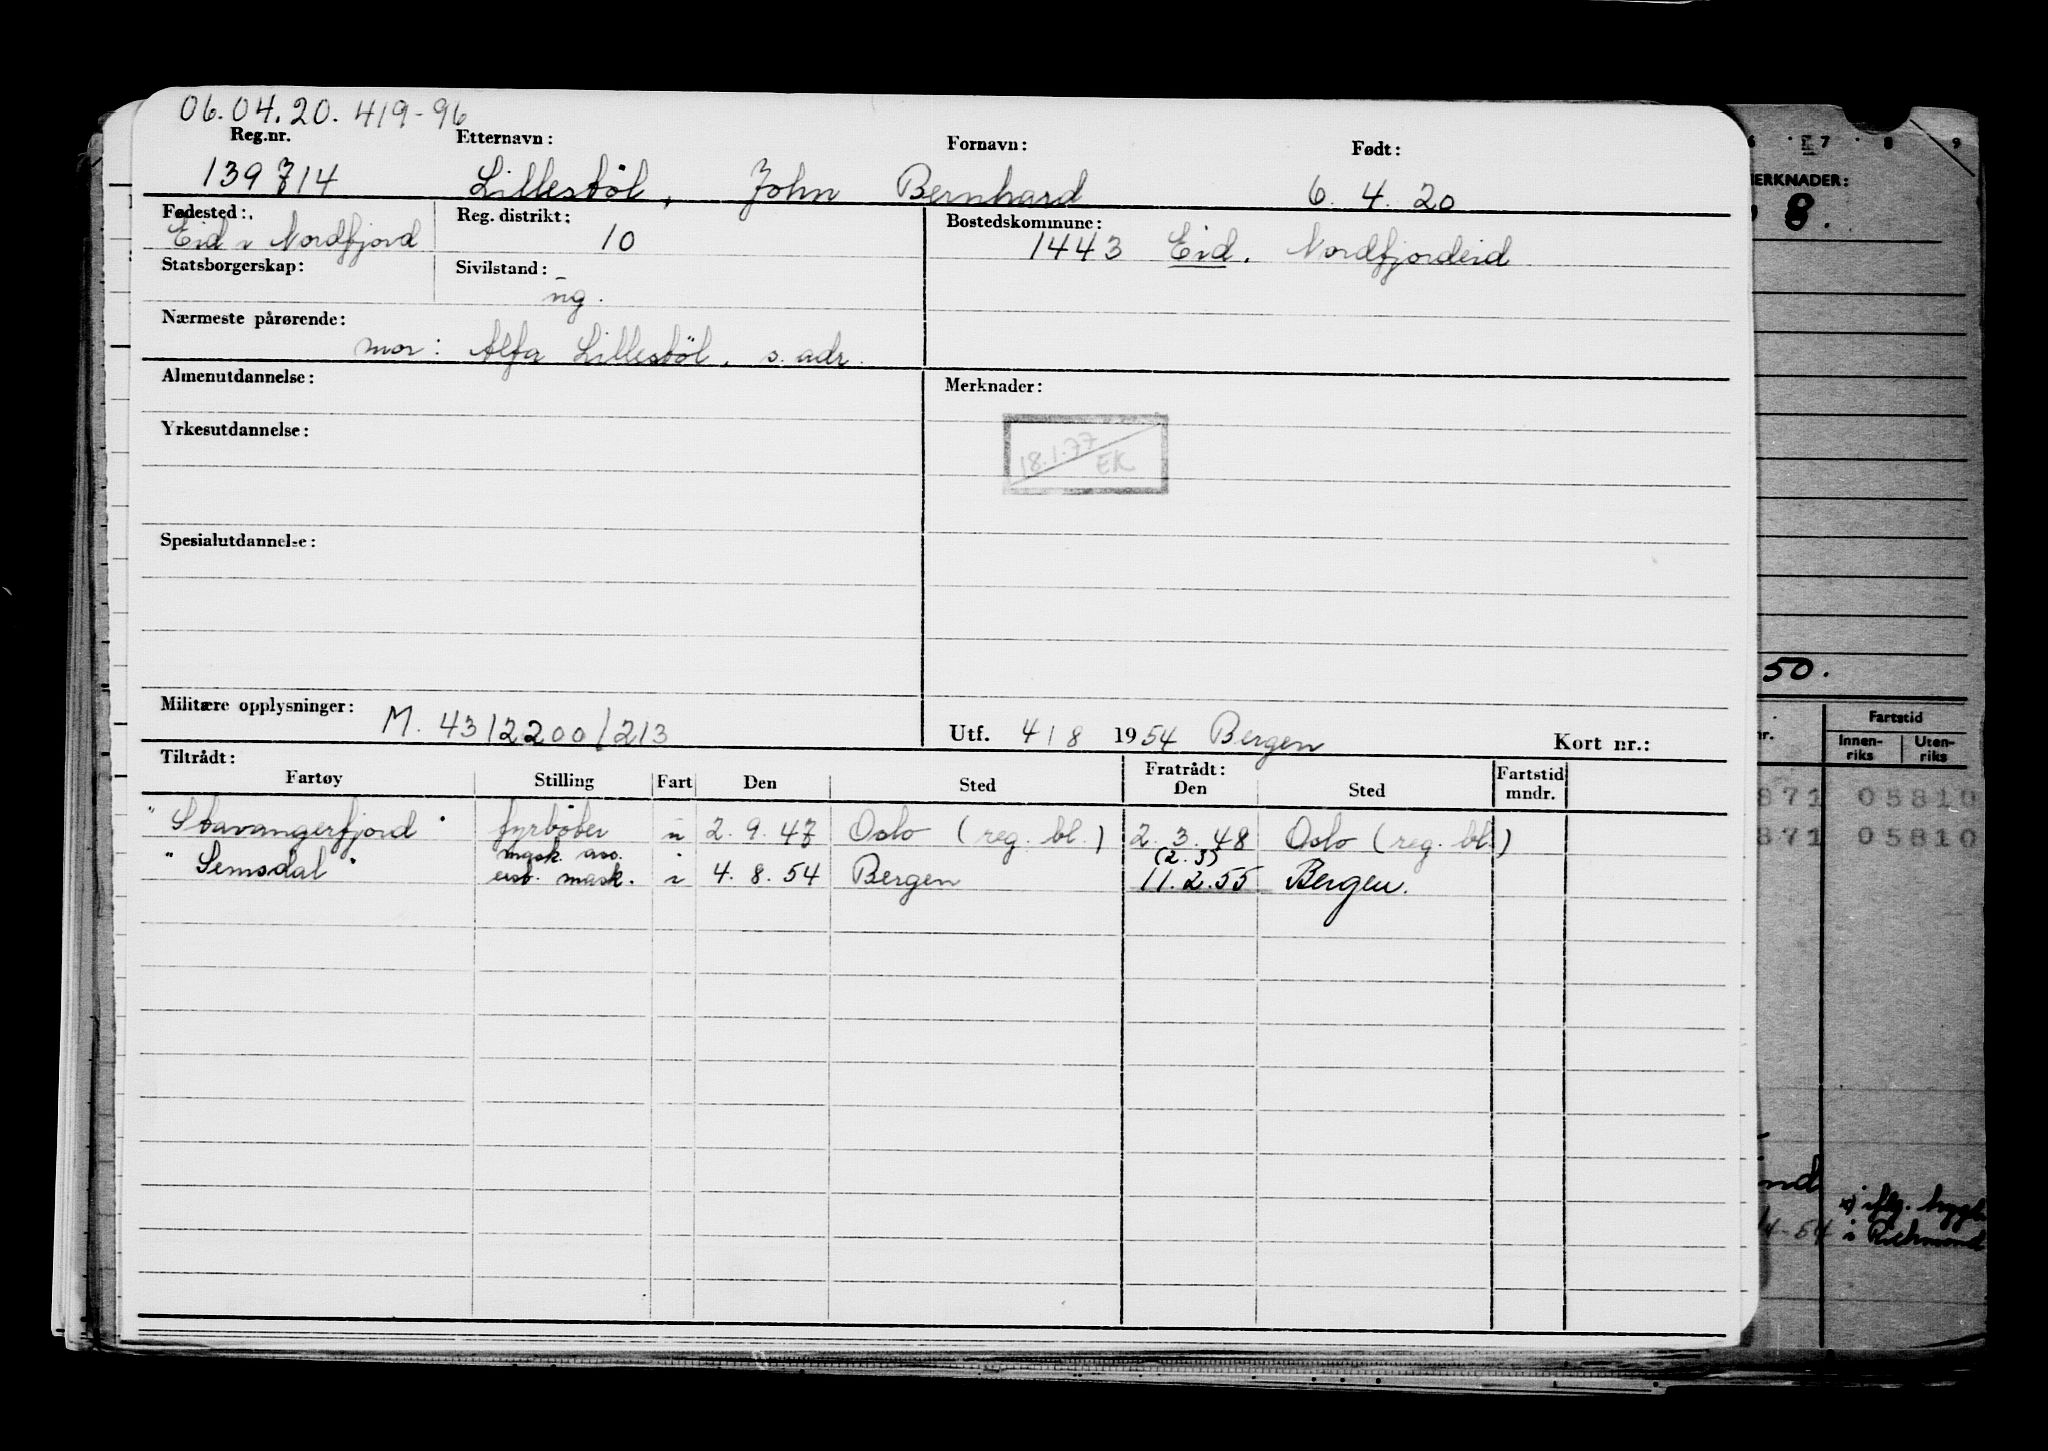 06.04.20.419-96
Reg.nr. Etternavn: Fornavn: Født:
139714 Lillestöl, John Bernhard 6. 4. 20
Fødested: Reg. distrikt: Bostedskommune:
Eid i Nordfjord 10 1443 Eid. Nordfjordeid
Statsborgerskap: Sivilstand:
ug.
Nærmeste pårørende:
mor: Alfa Lillestöl, s. adr.
Almenutdannelse: Merknader:
18.1.77
EK
Yrkesutdannelse:
Spesialutdannelse:
Militære opplysninger: M. 43/2200/213 Utf. 4/8 1954 Bergen Kort nr.:
Tiltrådt: Fratrådt:
Fartøy Stilling Fart Den Sted Den Sted Fartstid mndr.
"Stavangerfjord" fyrböter u 2. 9. 47 Oslo (reg. bl.) 2. 3. 48 Oslo (reg. bl.)
mask. ass. (2. 3)
"Semsdal" mask. i 4. 8. 54 Bergen 11. 2. 55 Bergen.
6 7 8 9
MERKNADER:
8.
50.
Fartstid
Innen-riks Uten-riks
871 05810
871 05810
4-54 i Richmond